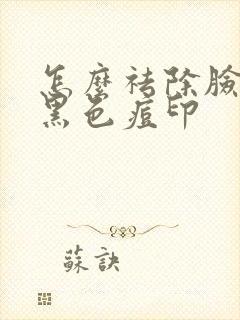 怎麼祛除臉
黑色痘印
蘇訣